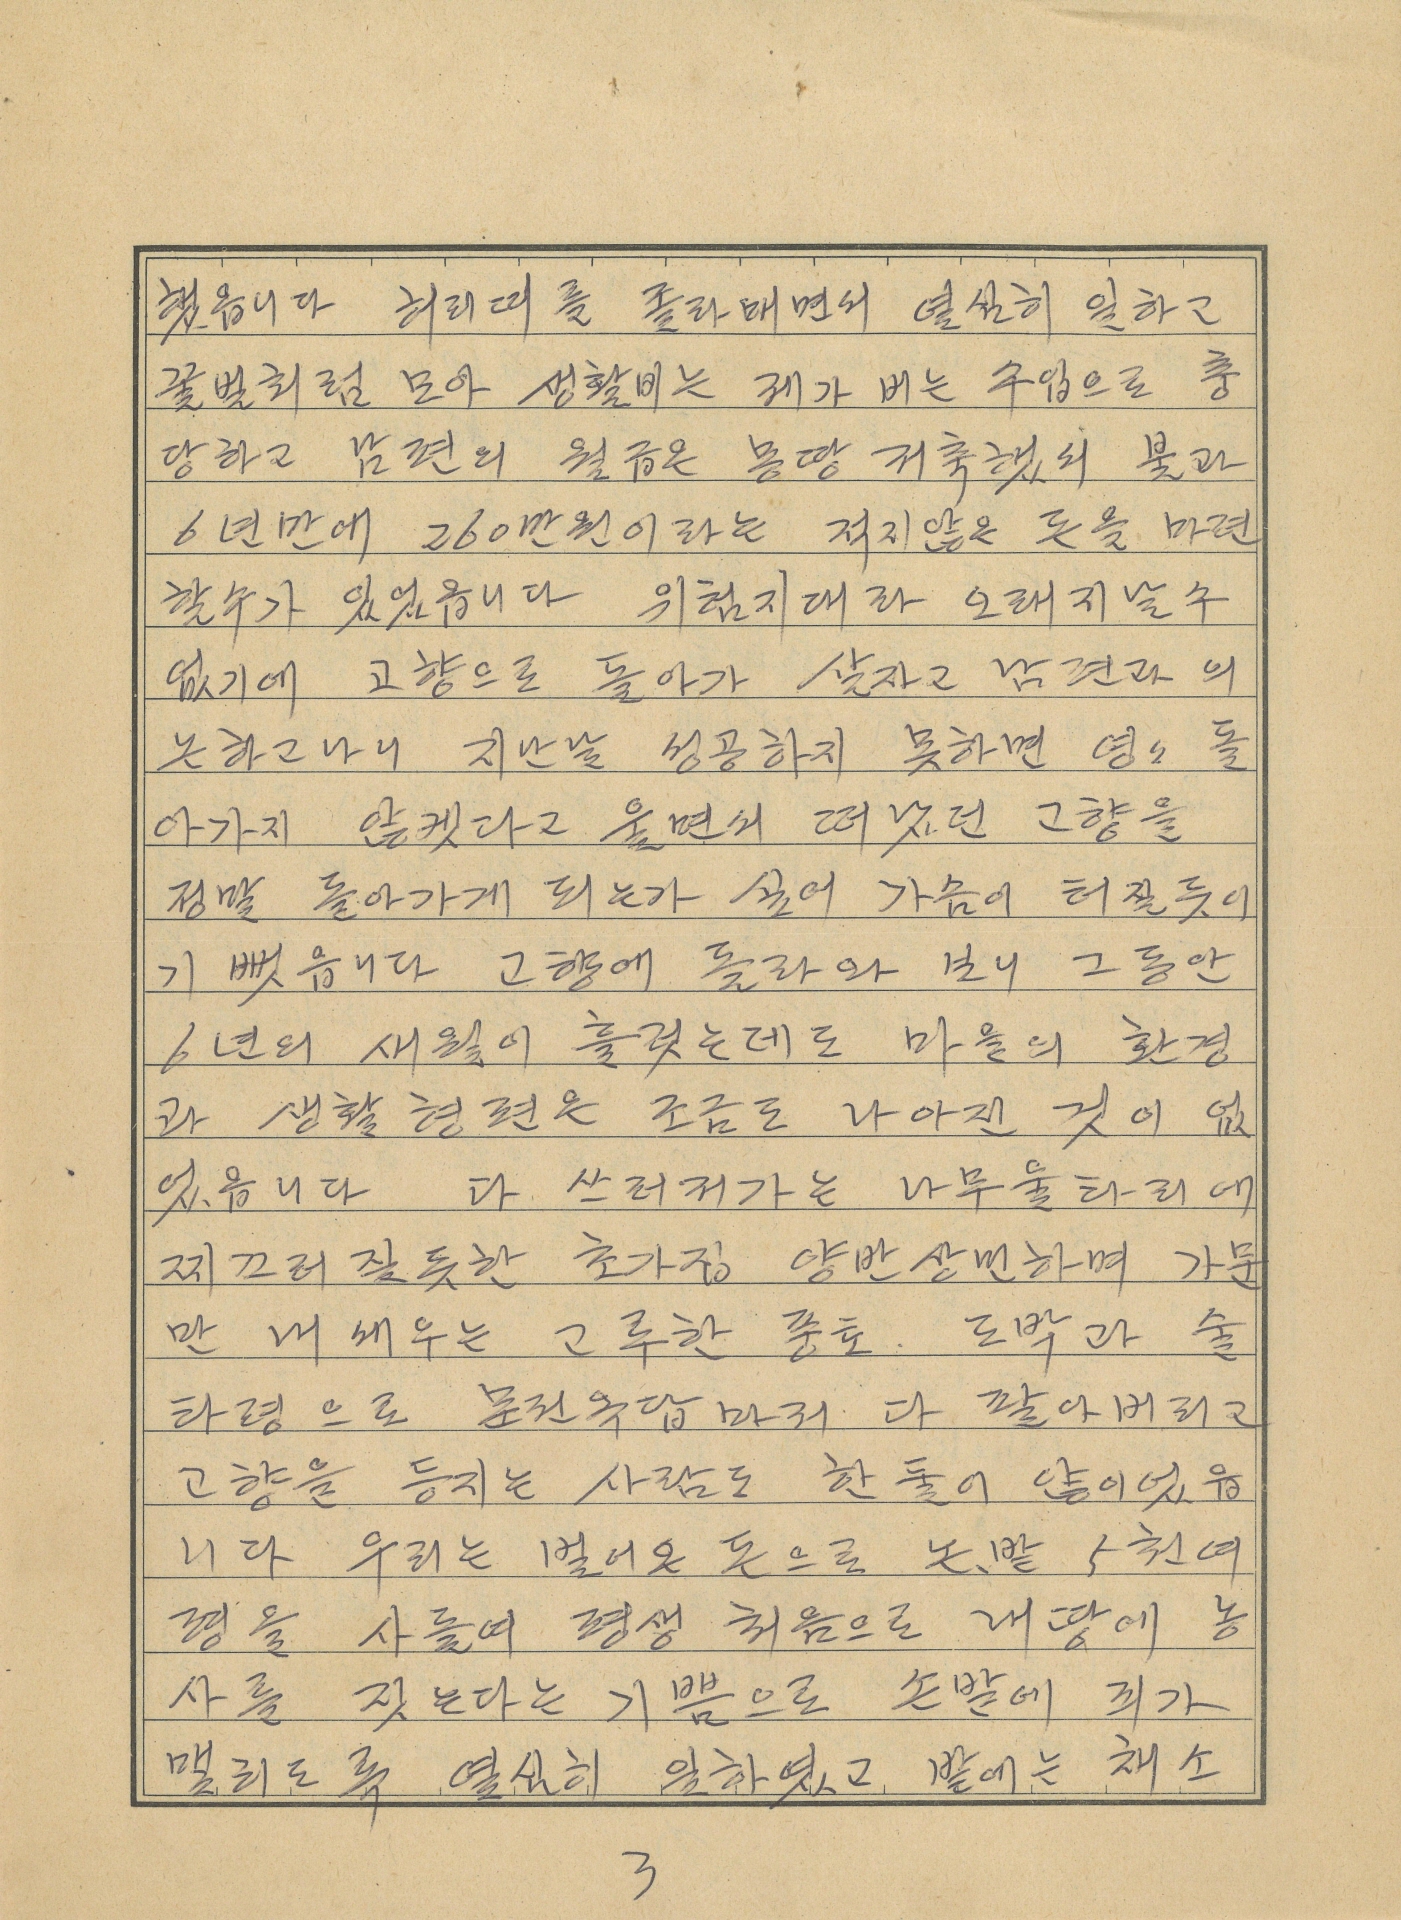 했읍니다 허리띠를 졸라매면서 열심히 일하고
꿀벌처럼 모아 생활비는 제가 버는 수입으로 충
당하고 남편의 월급은 몽땅 저축했서 불과
6년만에 260만원이라는 적지않은 돈을 마련
할수가 있었읍니다 위험지대라 오래지날수
없기에 고향으로 돌아가 살자고 남편과 의
논하고나니 지난날 성공하지 못하면 영영 돌
아가지 않겟다고 울면서 떠났던 고향을
정말 돌아가게 되는가 싶어 가슴이 터질듯이
기뻣읍니다 고향에 돌라와 보니 그동안
6년의 새월이 흘럿는데도 마을의 환경
과 생활형편은 조금도 나아진 것이 없
었읍니다 다 쓰러저가는 나무울타리에
찌끄러질듯한 초가집 양반상번하며 가문
만 내세우는 고루한 풍토. 도박과 술
타령으로 문전옥답마저 다 팔아버리고
고향을 등지는 사람도 한둘이 않이었읍
니다 우리는 벌어온 돈으로 논、밭 5천여
평을 사들여 평생 처음으로 내땅에 농
사를 짓는다는 기쁨으로 손발에 피가
맺리도록 열심히 일하였고 밭에는 채소
3